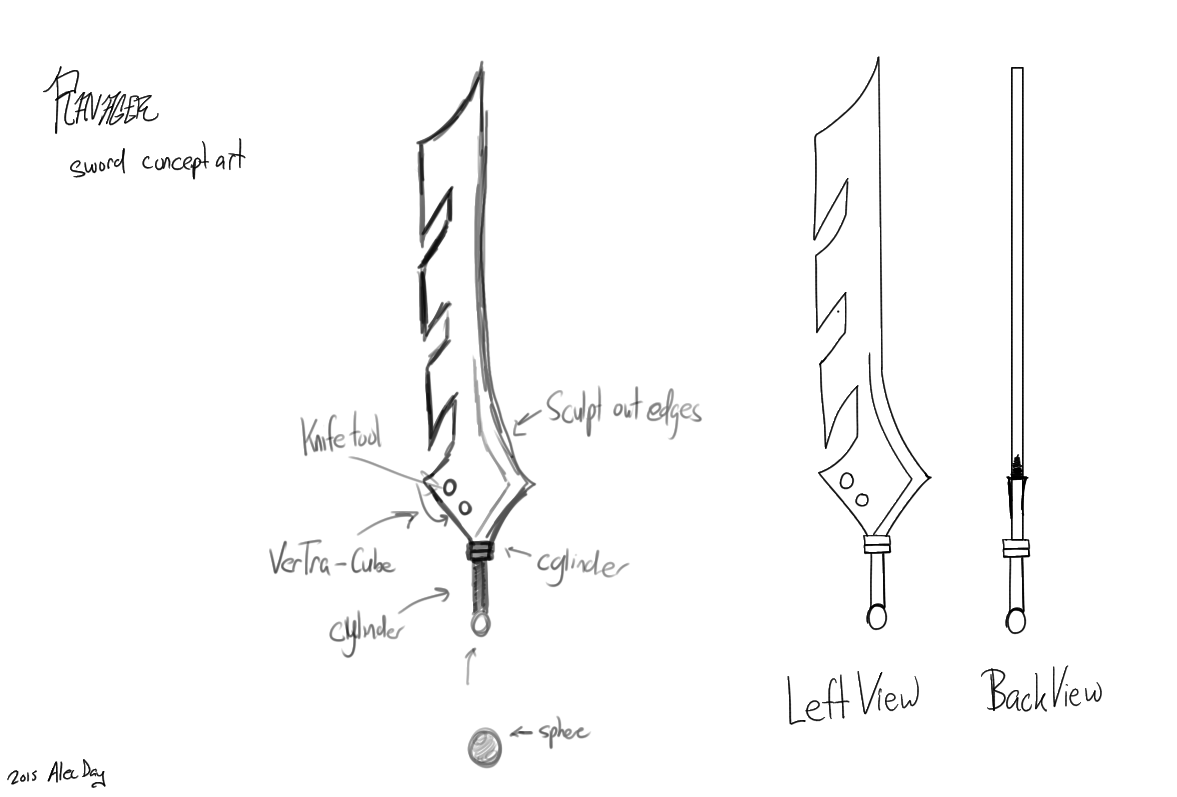 RAVAGER
sword concept art
Sculpt out edges
Knife tool
VerTra-Cube
cylinder
cylinder
sphere
Left View
Back View
2015 Alec Day